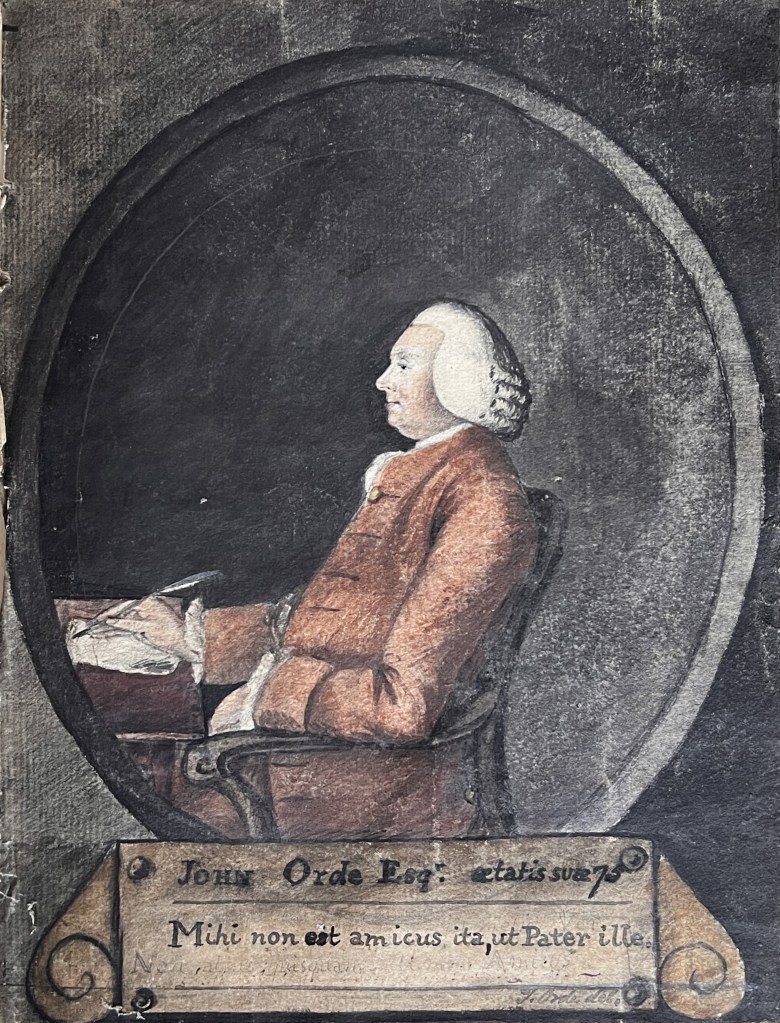 JOHN Orde Esqr. ætatis suæ 75
Mihi non est amicus ita, ut Pater ille.
Non
T. Orde del.